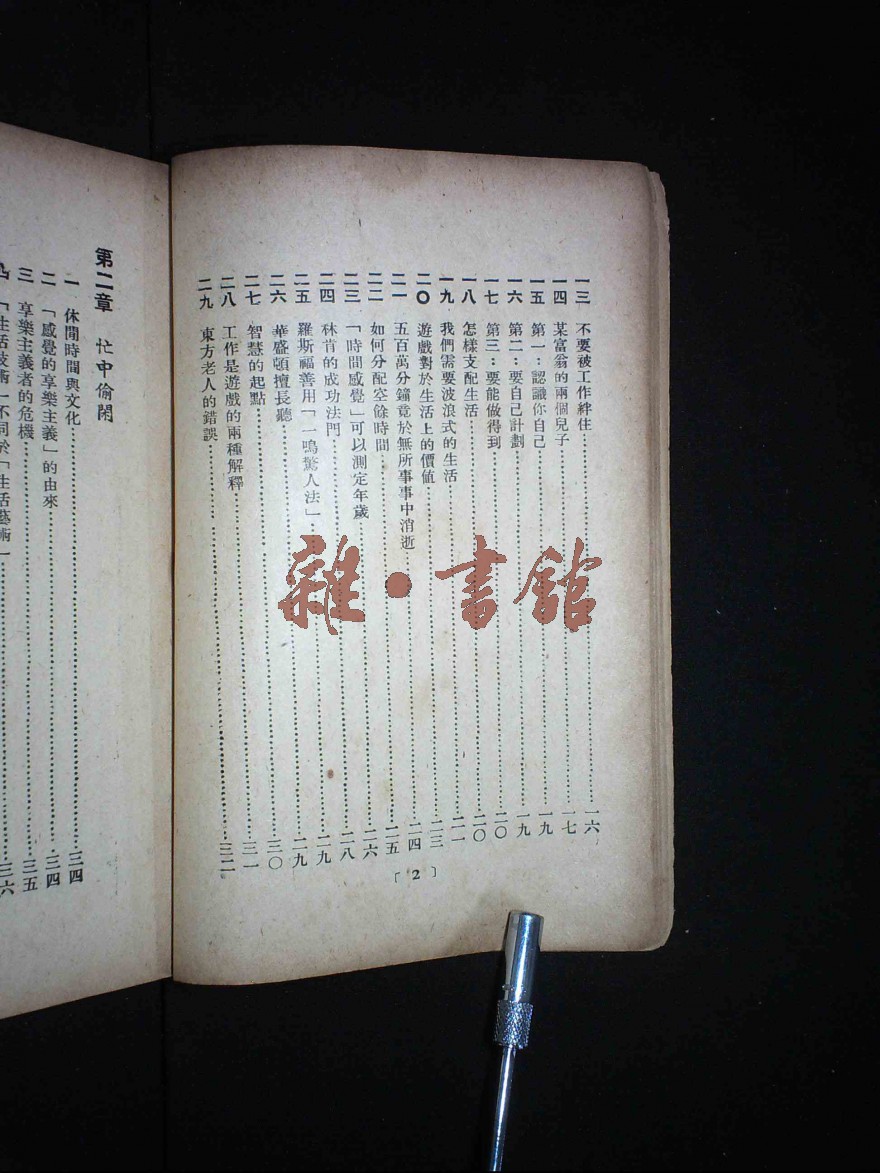 一三 不要被工作絆住……一六
一四 某富翁的兩個兒子……一七
一五 第一：認識你自己……一九
一六 第二：要自己計劃……一九
一七 第三：要能做得到……二〇
一八 怎樣支配生活……二〇
一九 我們需要波浪式的生活……二一
二〇 遊戲對於生活上的價值……二三
二一 五百萬分鐘竟於無所事事中消逝……二四
二二 如何分配空餘時間……二五
二三 「時間感覺」可以測定年歲……二六
二四 林肯的成功法門……二八
二五 羅斯福善用「一鳴驚人法」……二九
二六 華盛頓擅長聽……二九
二七 智慧的起點……三〇
二八 工作是遊戲的兩種解釋……三一
二九 東方老人的錯誤……三二
〔2〕
第二章 忙中偷閒
一 休閒時間與文化……三四
二 「感覺的享樂主義」的由來……三四
三 享樂主義者的危機……三五
四 「生活技術」不同於「生活藝術」……三六
雜·書館